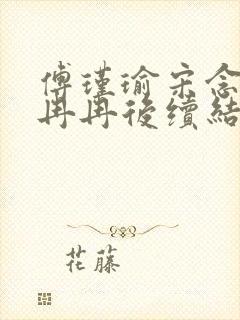 傅瑾瑜宋念
冉冉後續結
花藤